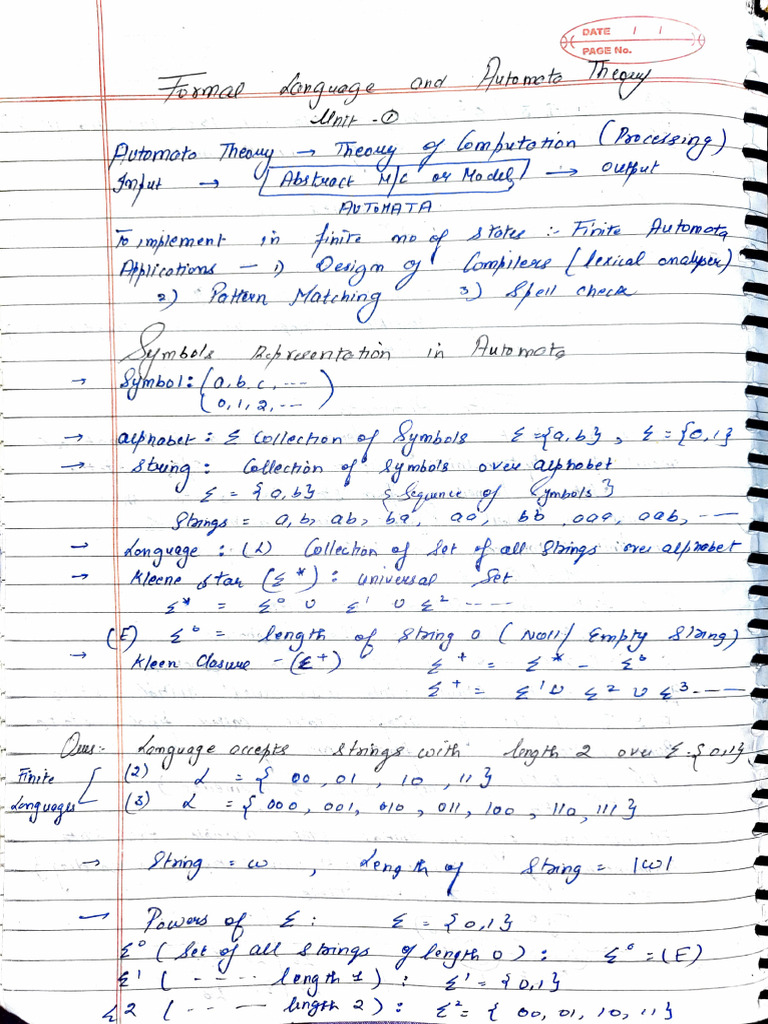 DATE / /
PAGE No.
Formal Language and Automata Theory
Unit - ①
Automata Theory → Theory of Computation (Processing)
Input → [Abstract M/C or Model] → Output
AUTOMATA
To implement in finite no of states :- Finite Automata
Applications - 1) Design of Compilers (lexical analyser)
2) Pattern Matching 3) Spell check
Symbols Representation in Automata
→ Symbol: (a, b, c, ----
0, 1, 2, --)
→ alphabet: Σ Collection of Symbols Σ = {a, b}, Σ = {0, 1}
→ String: Collection of symbols over alphabet
Σ = {a, b} {Sequence of Symbols}
Strings = a, b, ab, ba, aa, bb, aaa, aab, ----
→ Language: (L) Collection of Set of all Strings over alphabet
→ Kleene Star (Σ*): universal Set
Σ* = Σ⁰ ∪ Σ¹ ∪ Σ² -----
(E) Σ⁰ = length of String 0 (Null/Empty String)
→ Kleen Closure - (Σ⁺) Σ⁺ = Σ* - Σ⁰
Σ⁺ = Σ¹ ∪ Σ² ∪ Σ³ ----
Ques:- Language accepts strings with length 2 over Σ = {0,1}
Finite (2) L = {00, 01, 10, 11}
Languages (3) L = {000, 001, 010, 011, 100, 110, 111}
→ String = w, Length of String = |w|
→ Powers of Σ: Σ = {0,1}
Σ⁰ (Set of all strings of length 0): Σ⁰ = (E)
Σ¹ (----- length 1): Σ¹ = {0,1}
Σ2 (----- length 2): Σ² = {00, 01, 10, 11}